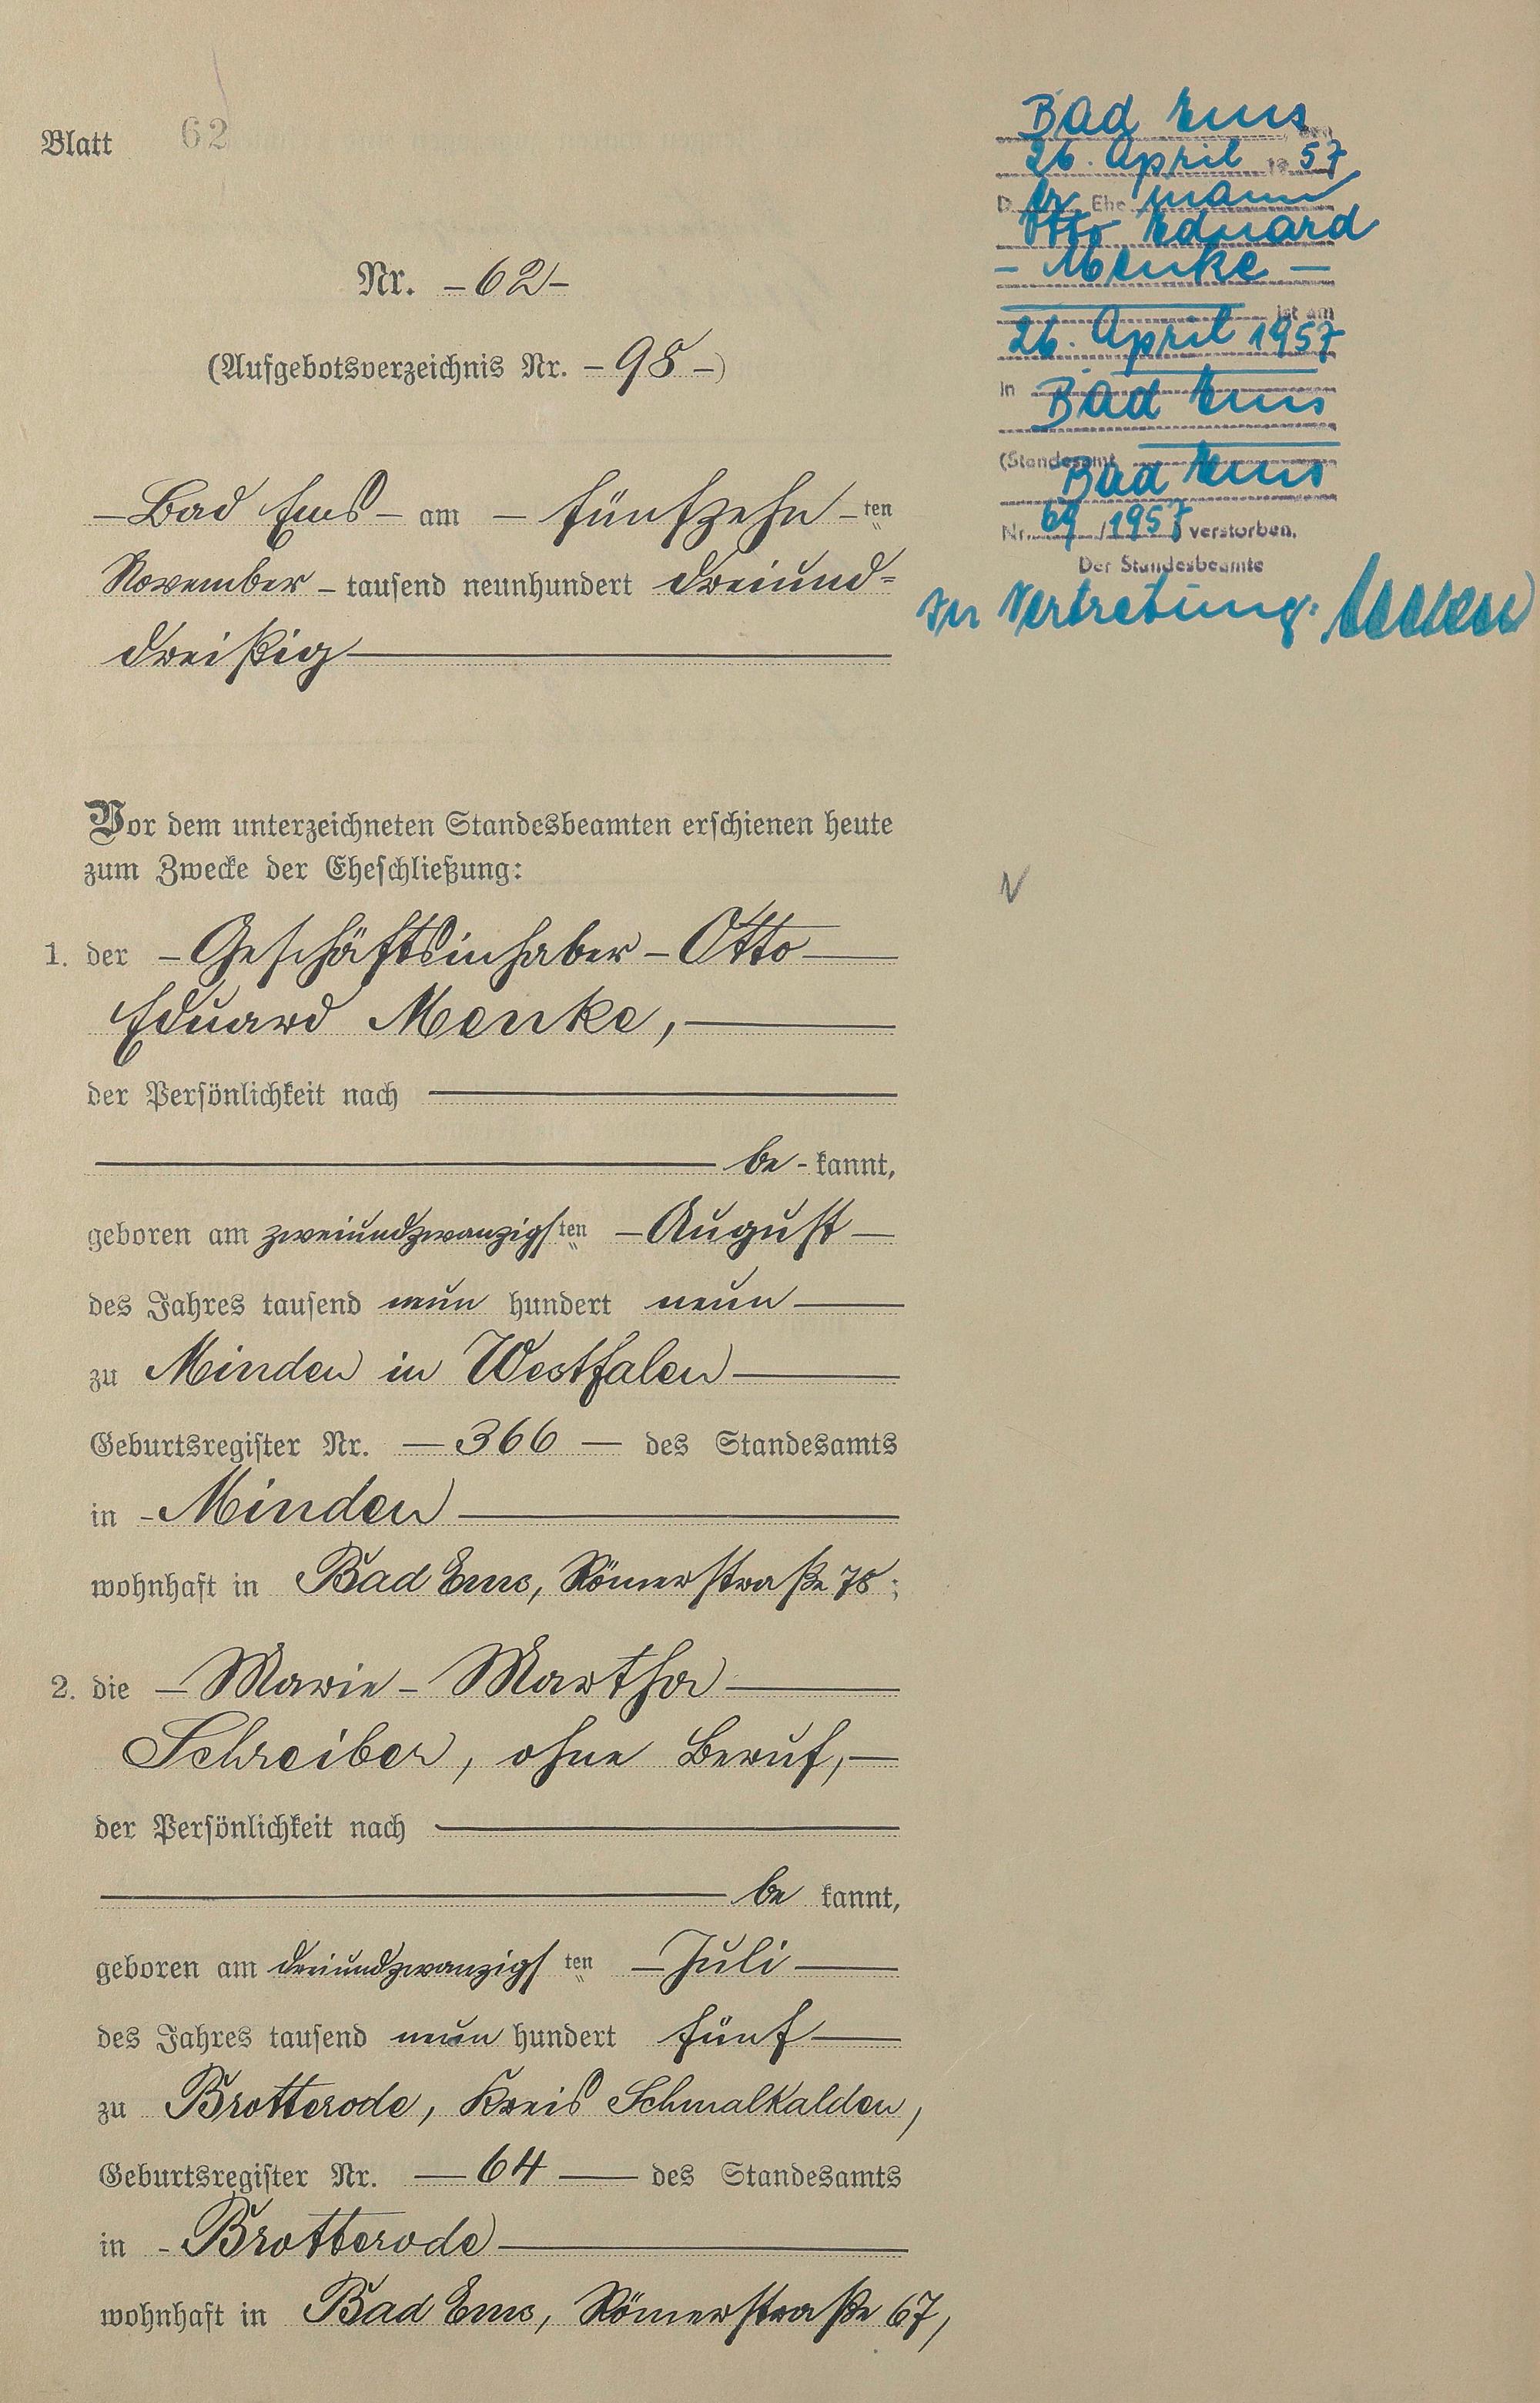 Blatt 62
Nr. – 62 –
(Aufgebotsverzeichnis Nr. – 98 –)
– Bad Ems – am – fünfzehn – ten
November – tausend neunhundert dreiund=
dreißig
Vor dem unterzeichneten Standesbeamten erschienen heute
zum Zwecke der Eheschließung:
1. der – Geschäftsinhaber – Otto
Eduard Menke,
der Persönlichkeit nach
be - kannt,
geboren am zweiundzwanzigsten – August –
des Jahres tausend neun hundert neun
zu Minden in Westfalen
Geburtsregister Nr. – 366 – des Standesamts
in - Minden
wohnhaft in Bad Ems, Römerstraße 78;
2. die – Marie – Martha
Schreiber, ohne Beruf, –
der Persönlichkeit nach
be kannt,
geboren am dreiundzwanzigsten – Juli
des Jahres tausend neun hundert fünf
zu Brotterode, Kreis Schmalkalden,
Geburtsregister Nr. – 64 – des Standesamts
in - Brotterode
wohnhaft in Bad Ems, Römerstraße 67,
Bad Ems, den
26. April 1957
Der Ehemann
Otto Eduard
– Menke –
ist am
26. April 1957
in Bad Ems
(Standesamt
Bad Ems
Nr. 69/1957 verstorben.
Der Standesbeamte
In Vertretung: